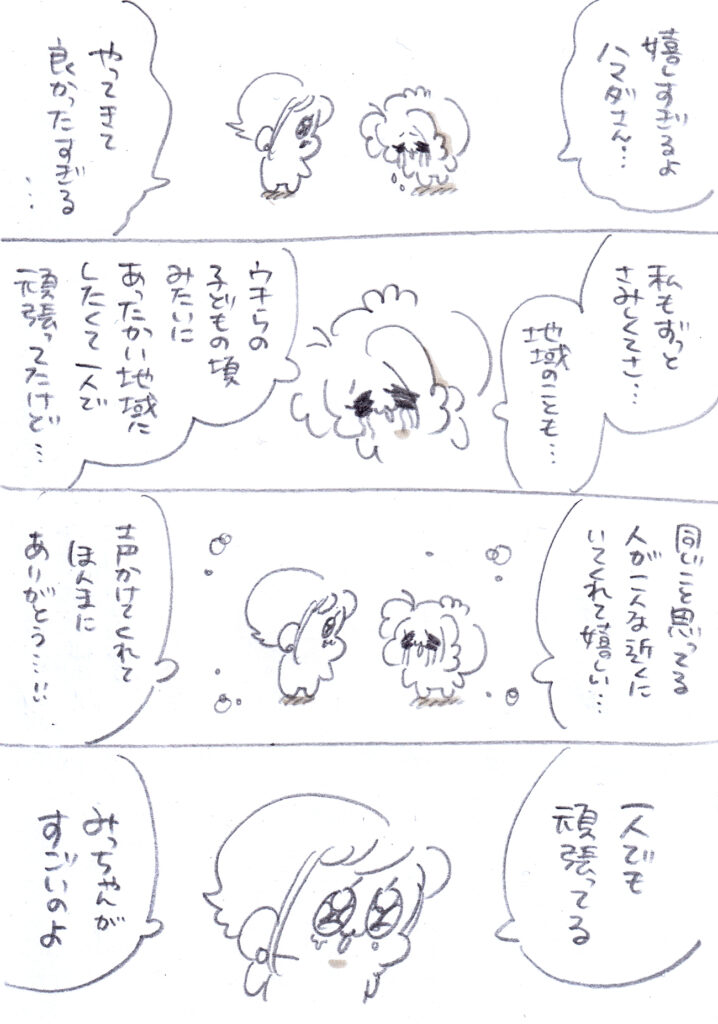 嬉しすぎるよ
ハマダさん…
やってきて
良かったすぎる
…
私もずっと
さみしくてさ…
地域のことも…
ウチらの
子どもの頃
みたいに
あったかい地域に
したくて一人で
頑張ってたけど…
同じこと思ってる
人がこんな近くに
いてくれて嬉しい…
声かけてくれて
ほんまに
ありがとう…!!
一人でも
頑張ってる
みっちゃんが
すごいのよ